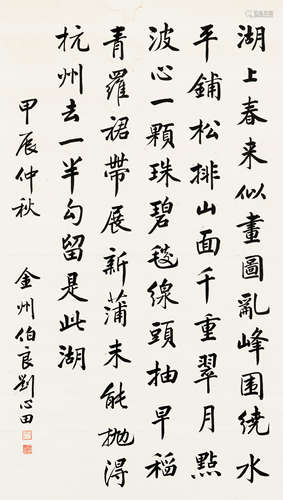 湖上春来似畫圖亂峰围繞水
平鋪松排山面千重翠月點
波心一顆珠碧毯線頭抽早稻
青羅裙帶展新蒲未能抛得
杭州去一半勾留是此湖
甲辰仲秋 金州伯良劉心田